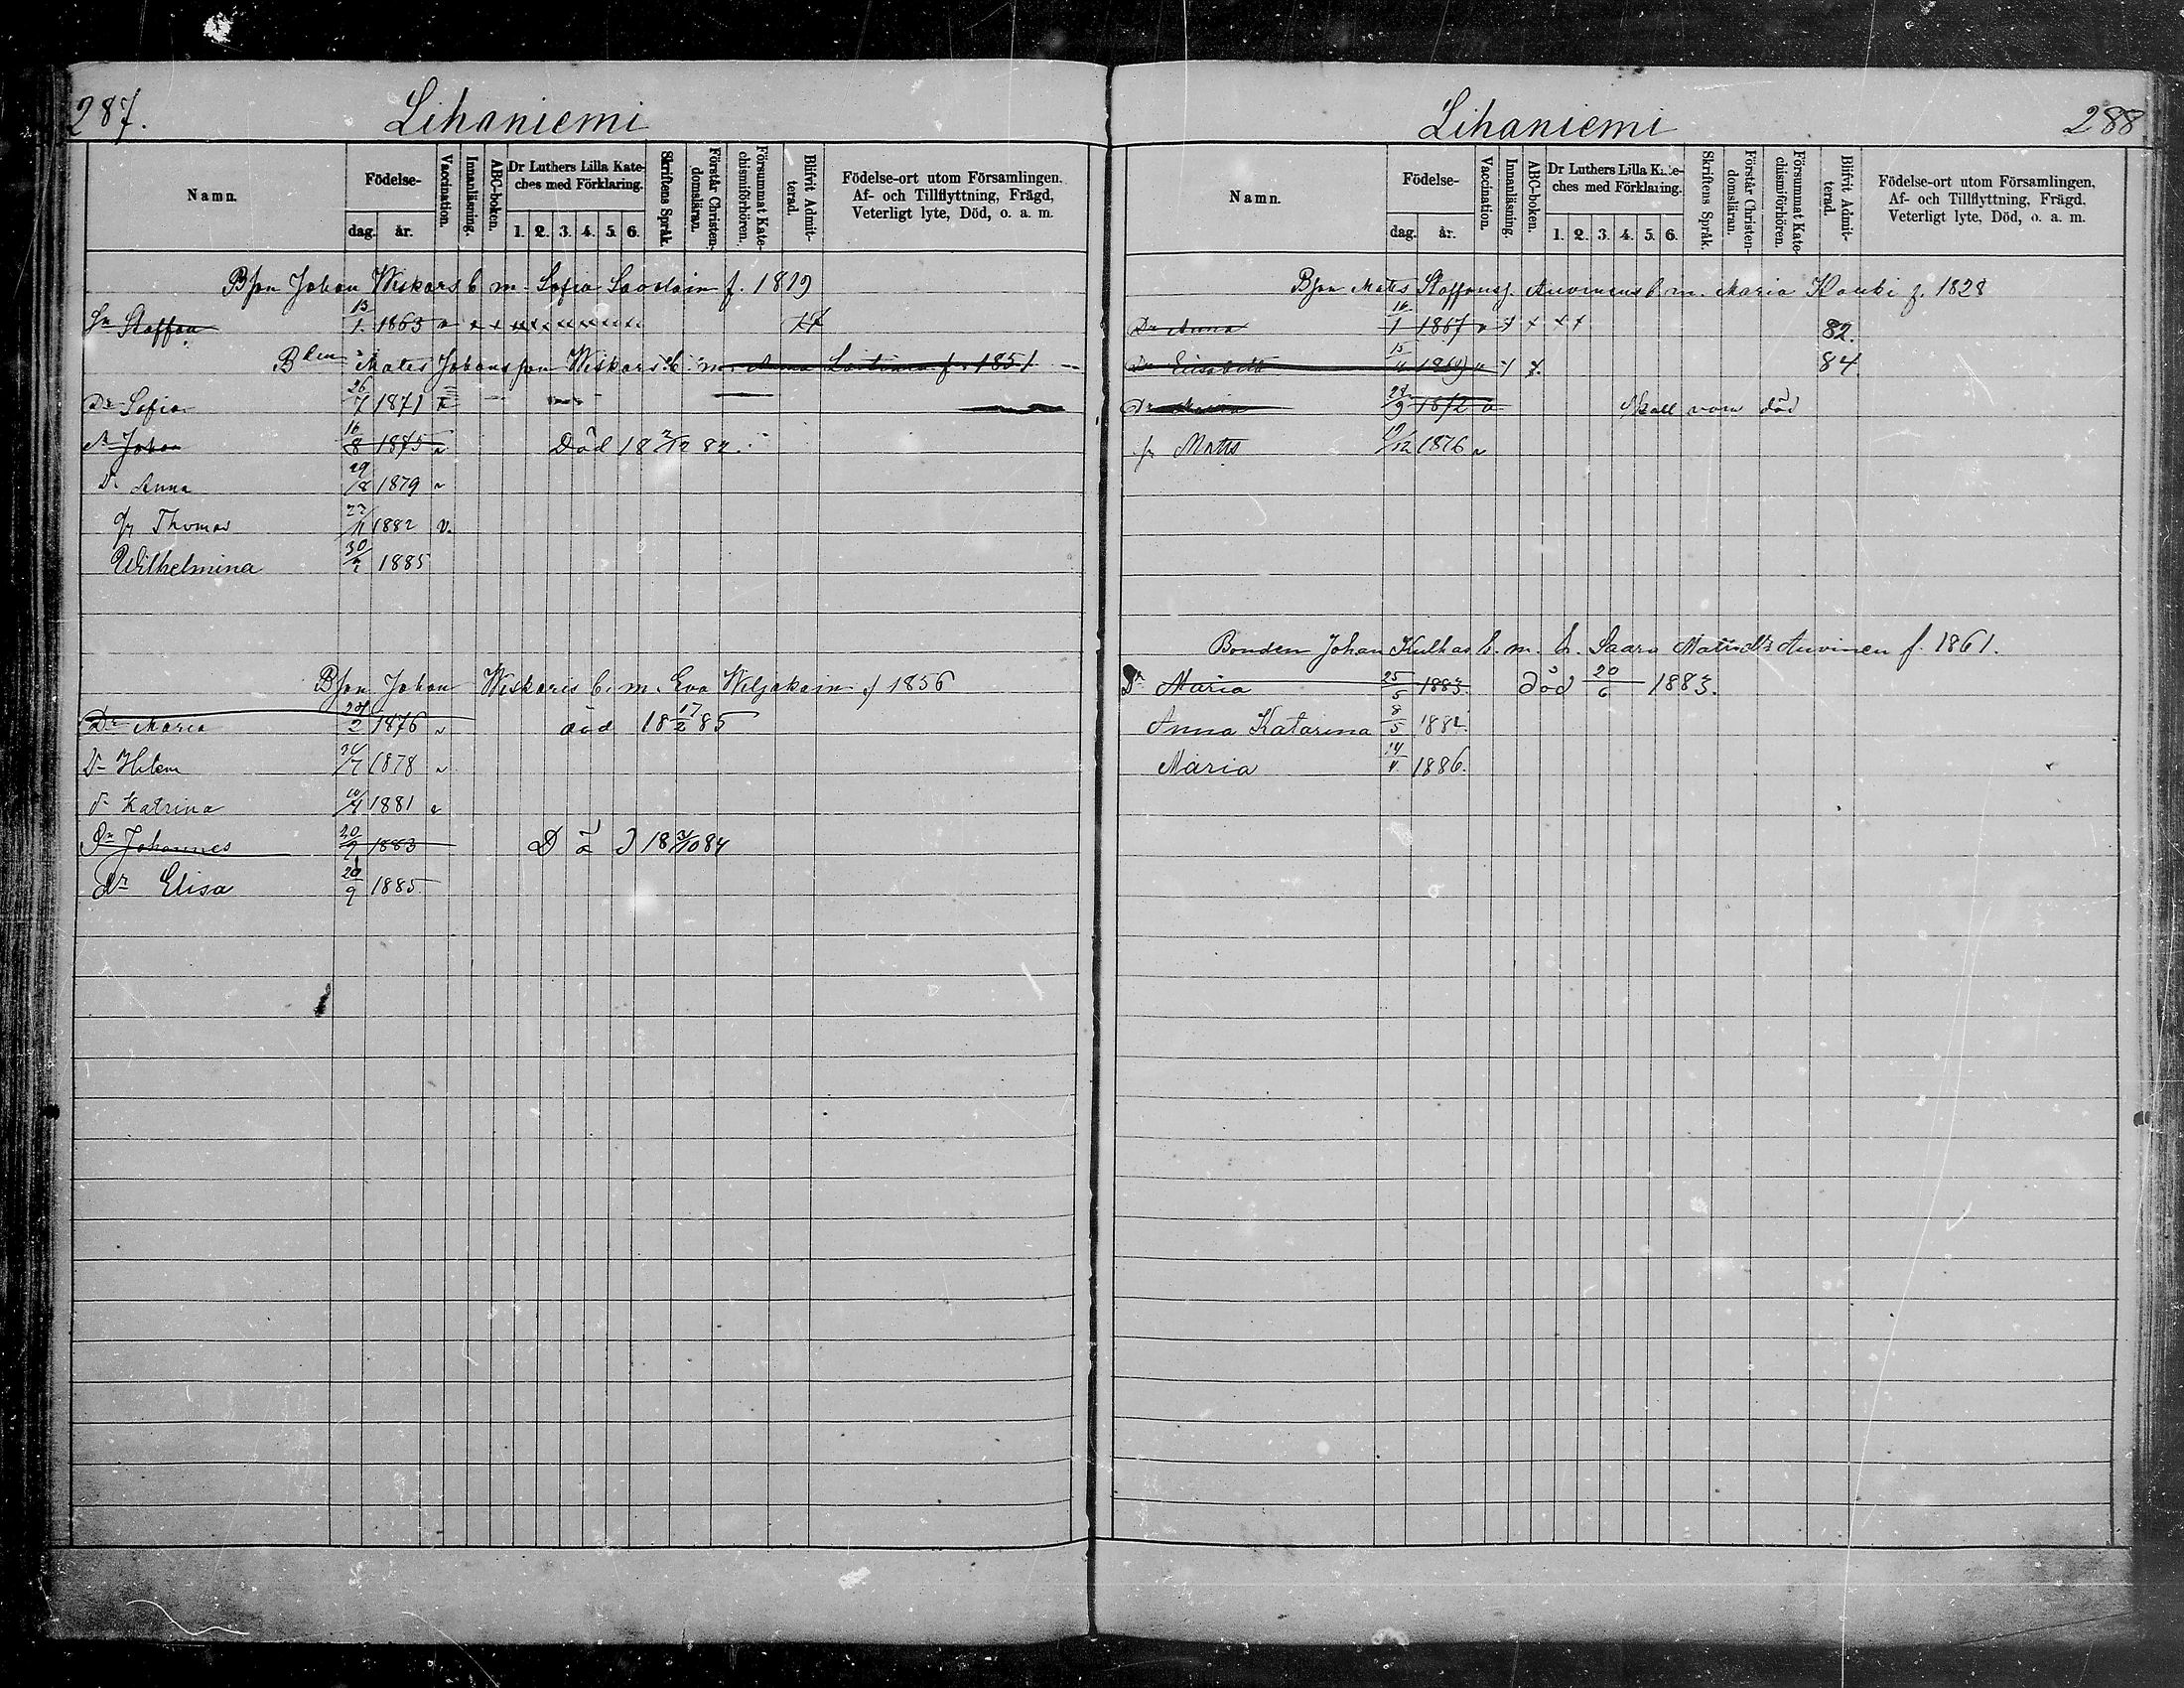 287.
Lihaniemi
Namn.
Födelse-
dag.
år.
Vaccination.
Innanläsning.
ABC-boken.
Dr Luthers Lilla Kate-
ches med Förklaring.
1. 2. 3. 4. 5. 6.
Skriftens Språk.
Förstår Christen-
domsläran.
Försummat Kate-
chismiförhören.
Blifvit Admit-
terad.
Födelse-ort utom Församlingen.
Af- och Tillflyttning, Frägd,
Veterligt lyte, Död, o. a. m.
Bson Johan Wiskars b m. Sofia Savolain f. 1819
Sn Staffan 13/1 1865
Blen Mats Johansson Wiskars b. m. Anna f. 1851
Dr Sofia 26/7 1871
Johan 16/8 1875 Död 18 2/12 82
Dr Anna 29/8 1879
Thomas 11 1882 v.
Wilhelmina 30 1885
Bson Johan Wiskaris b. m. Eva Wiljakain f 1856
Dr Maria 24/2 1876 död 18 17/2 85
Dr Helena 7 1878
dr Katrina 10/4 1881
Johannes 20/9 1883 Död 18 3/10 84
dr Elisa 20/9 1885.
Lihaniemi
288
Namn.
Födelse-
dag.
år.
Vaccination.
Innanläsning.
ABC-boken.
Dr Luthers Lilla Kate-
ches med Förklaring.
1. 2. 3. 4. 5. 6.
Skriftens Språk.
Förstår Christen-
domsläran.
Försummat Kate-
chismiförhören.
Blifvit Admit-
terad.
Födelse-ort utom Församlingen,
Af- och Tillflyttning, Frägd,
Veterligt lyte, Död, o. a. m.
Bson Mats Staffanss. Auvinens b m. Maria Kouki f. 1828
Dr Anna 16/1 1867 82.
Dr Elisabeth 15 84
Dr 9 1872 skall vara död
Matts 12 1876
Bonden Johan Kulhas b. m. h. Saara Matsdtr Auvinen f. 1861.
Dr Maria 25/5 1883. död 20/6 1883.
Anna Katarina 8/5
Maria 14 1886.